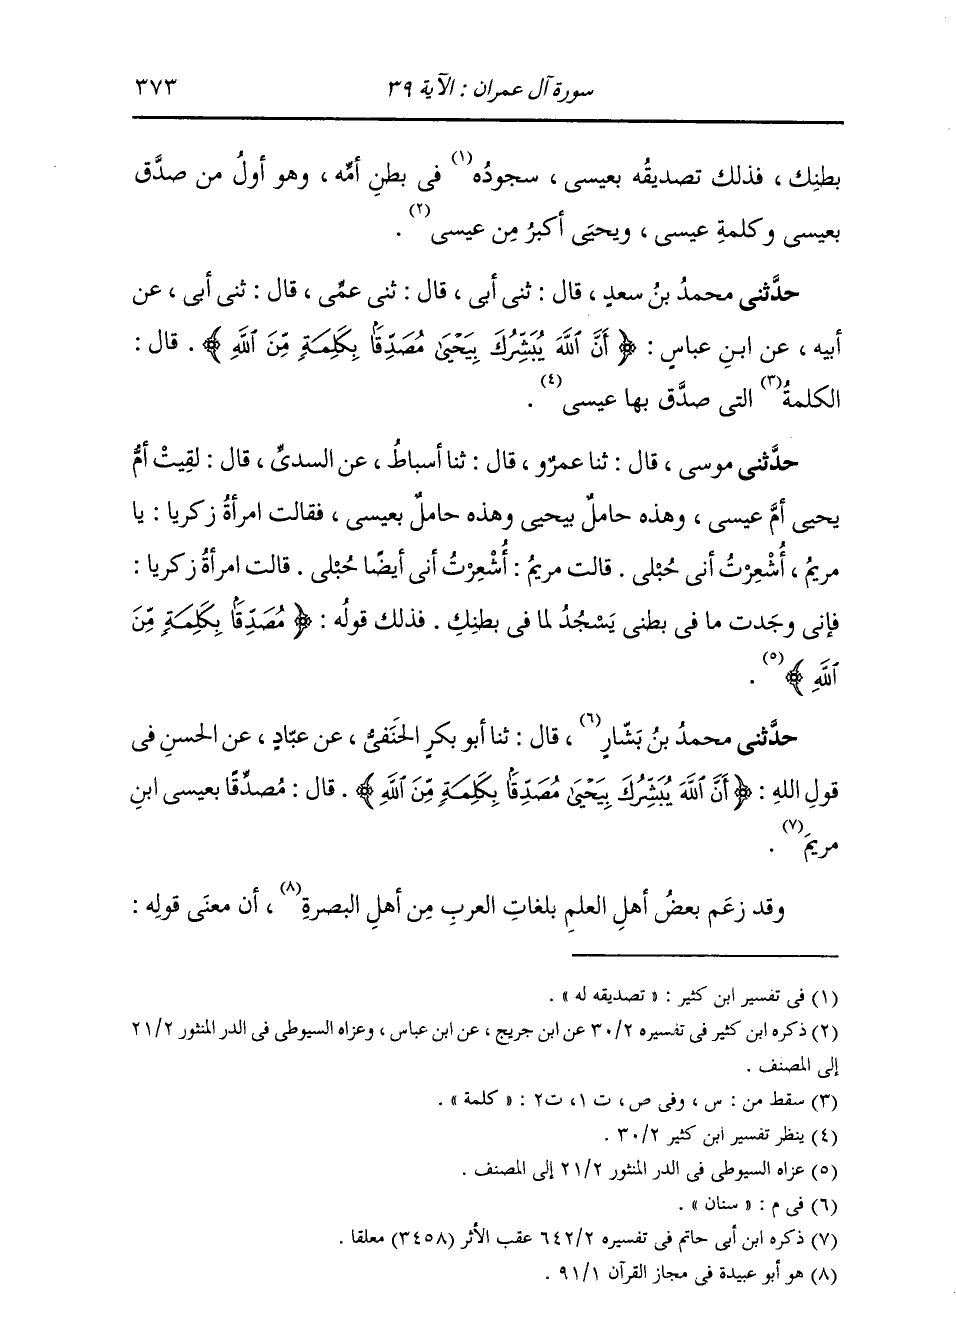 سورة آل عمران : الآية ٣٩ ٣٧٣
بطنِك ، فذلك تصديقُه بعيسى ، سجودُه(١) فى بطنِ أمِّه ، وهو أولُ من صدَّق
بعيسى وكلمةِ عيسى ، ويحيَى أكبرُ مِن عيسى(٢) .
حدَّثنى محمدُ بنُ سعدٍ ، قال : ثنى أبى ، قال : ثنى عمِّى ، قال : ثنى أبى ، عن
أبيه ، عن ابنِ عباسٍ : ﴿ أَنَّ ٱللَّهَ يُبَشِّرُكَ بِيَحْيَىٰ مُصَدِّقًۢا بِكَلِمَةٍ مِّنَ ٱللَّهِ ﴾ . قال :
الكلمةُ(٣) التى صدَّق بها عيسى(٤) .
حدَّثنى موسى ، قال : ثنا عمرٌو ، قال : ثنا أسباطُ ، عن السدىِّ ، قال : لقِيتْ أمُّ
يحيى أمَّ عيسى ، وهذه حاملٌ بيحيى وهذه حاملٌ بعيسى ، فقالت امرأةُ زكريا : يا
مريمُ ، أُشْعِرْتُ أنى حُبْلى . قالت مريمُ : أُشْعِرْتُ أنى أيضًا حُبْلى . قالت امرأةُ زكريا :
فإنى وجَدت ما فى بطنى يَسْجُدُ لما فى بطنِكِ . فذلك قولُه : ﴿ مُصَدِّقًۢا بِكَلِمَةٍ مِّنَ
ٱللَّهِ ﴾(٥) .
حدَّثنى محمدُ بنُ بَشّارٍ(٦) ، قال : ثنا أبو بكرٍ الحَنَفىُّ ، عن عبّادٍ ، عن الحسنِ فى
قولِ اللهِ : ﴿ أَنَّ ٱللَّهَ يُبَشِّرُكَ بِيَحْيَىٰ مُصَدِّقًۢا بِكَلِمَةٍ مِّنَ ٱللَّهِ ﴾ . قال : مُصدِّقًا بعيسى ابنِ
مريمَ(٧) .
وقد زعَم بعضُ أهلِ العلمِ بلغاتِ العربِ مِن أهلِ البصرةِ(٨) ، أن معنَى قولِه :
(١) فى تفسير ابن كثير : « تصديقه له » .
(٢) ذكره ابن كثير فى تفسيره ٣٠/٢ عن ابن جريج ، عن ابن عباس ، وعزاه السيوطى فى الدر المنثور ٢١/٢
إلى المصنف .
(٣) سقط من : س ، وفى ص ، ت ١، ت٢ : « كلمة » .
(٤) ينظر تفسير ابن كثير ٣٠/٢ .
(٥) عزاه السيوطى فى الدر المنثور ٢١/٢ إلى المصنف .
(٦) فى م : « سنان » .
(٧) ذكره ابن أبى حاتم فى تفسيره ٦٤٢/٢ عقب الأثر (٣٤٥٨) معلقا .
(٨) هو أبو عبيدة فى مجاز القرآن ٩١/١ .